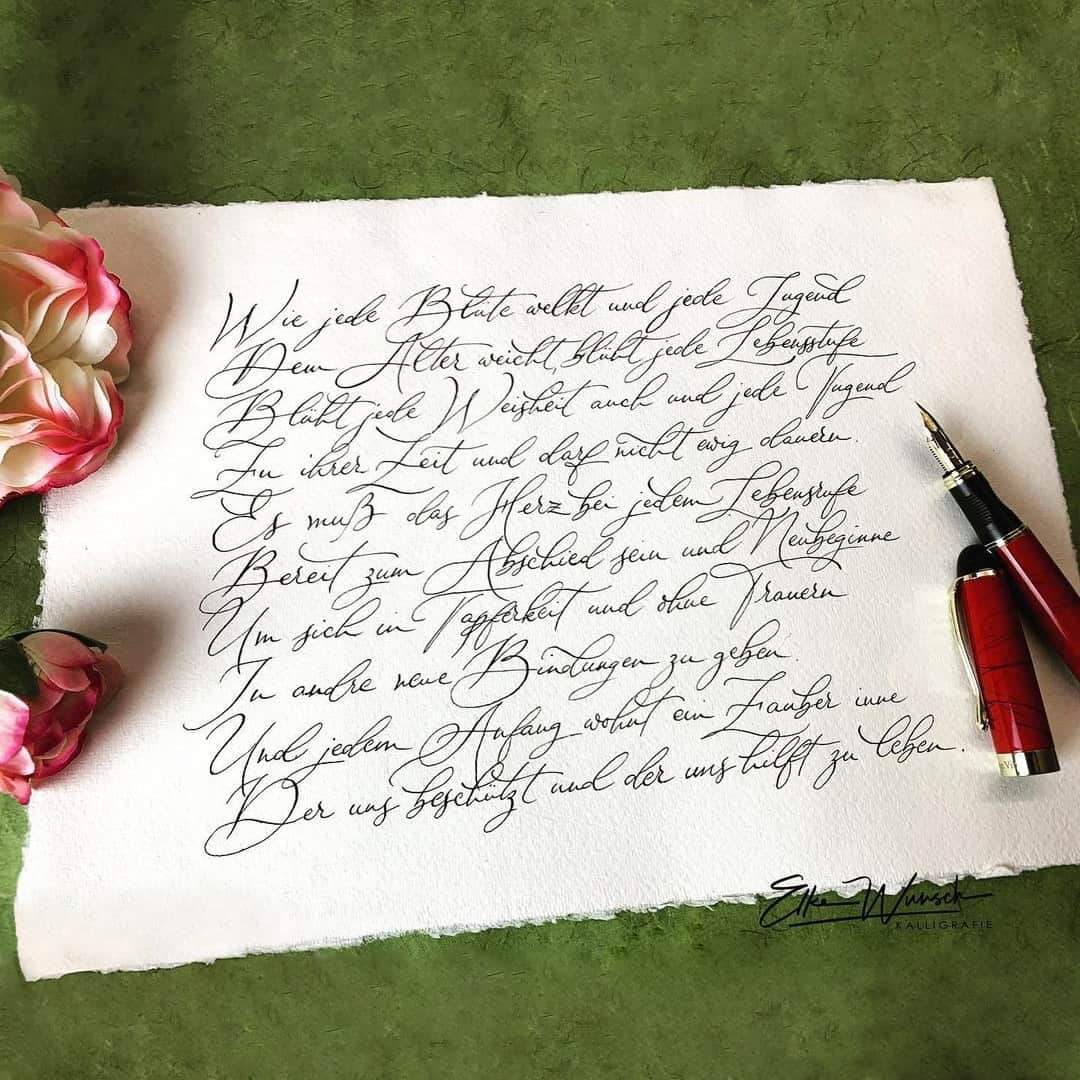 Wie jede Blüte welkt und jede Jugend
Dem Alter weicht, blüht jede Lebensstufe
Blüht jede Weisheit auch und jede Tugend
Zu ihrer Zeit und darf nicht ewig dauern.
Es muß das Herz bei jedem Lebensrufe
Bereit zum Abschied sein und Neubeginne
Um sich in Tapferkeit und ohne Trauern
In andre neue Bindungen zu geben.
Und jedem Anfang wohnt ein Zauber inne
Der uns beschützt und der uns hilft zu leben.
Elke Wunsch
KALLIGRAFIE